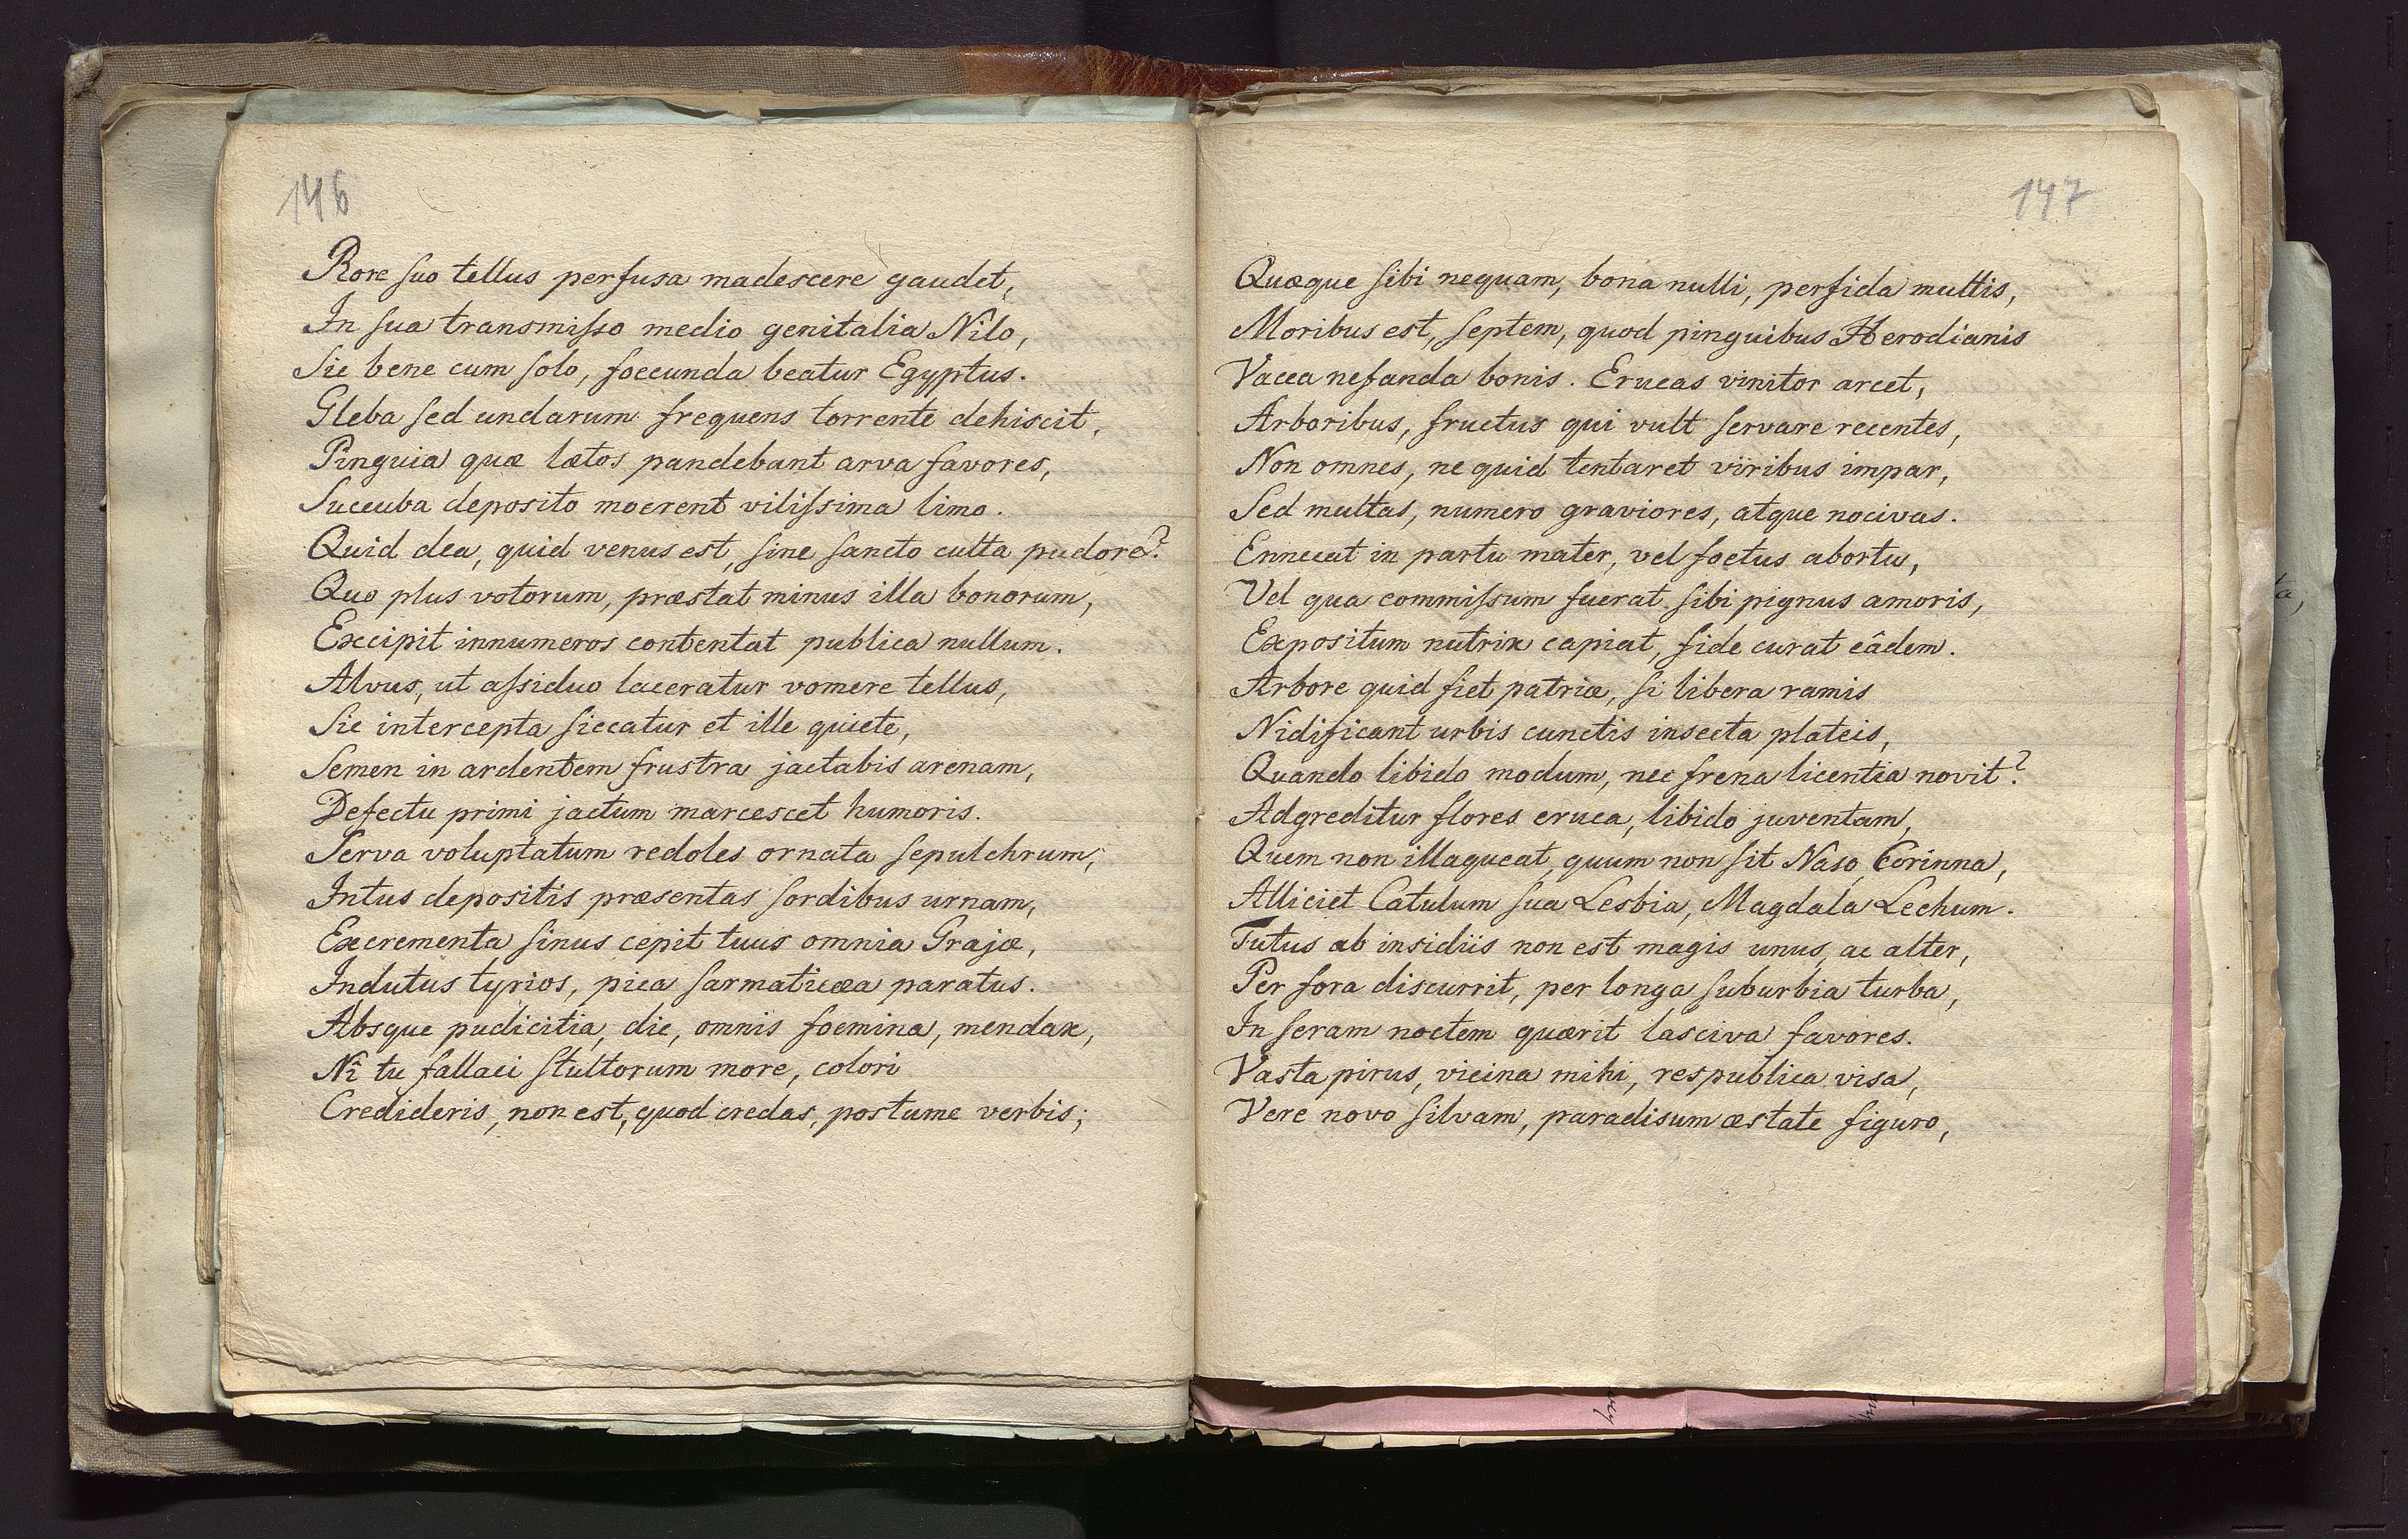 146
Rore suo tellus perfusa madescere gaudet,
In sua transmisso medio genitalia Nilo,
Sic bene cum solo, foecunda beatur Egyptus.
Gleba sed undarum frequens torrente dehiscit,
Pinguia quæ lætos pandebant arva favores,
Succuba deposito moerent vilissima limo.
Quid dea, quid venus est, sine sancto culta pudore?
Quo plus votorum, præstat minus illa bonorum,
Excipit innumeros contentat publica nullum.
Alvus, ut assiduo laceratur vomere tellus,
Sic intercepta siccatur et ille quiete,
Semen in ardentem frustra jactabis arenam,
Defectu primi jactum marcescet humoris.
Serva voluptatum redoles ornata sepulchrum,
Intus depositis præsentas sordibus urnam,
Excrementa sinus cepit tuus omnia Grajæ,
Indutus tyrios, pica paratus.
Absque pudicitia, dic, omnis foemina, mendax,
Ni tu fallaci stultorum more, colori
Credideris, non est, quod credas, postume verbis;
147
Quæque sibi nequam, bona nulli, perfida multis,
Moribus est, septem, quod pinguibus Herodianis
Vacca nefanda bonis. Erucas vinitor arcet,
Arboribus, fructus qui vult servare recentes,
Non omnes, ne quid tentaret viribus impar,
Sed multas, numero graviores, atque nocivas.
Ennecat in partu mater, vel foetus abortu,
Vel qua commissum fuerat sibi pignus amoris,
Expositum nutrix capiat, fide curat eâdem.
Arbore quid fiet patriæ, si libera ramis
Nidificant urbis cunctis insecta plateis,
Quando libido modum, nec frena licentia novit?
Adgreditur flores eruca, libido juventam,
Quem non illaqueat, quum non sit Naso, Corinna,
Alliciet Catulum sua Lesbia, Magdala Lechum.
Tutus ab insidiis non est magis unus, ac alter,
Per fora discurrit, per longa suburbia turba,
In seram noctem quærit lasciva favores.
Vasta pirus, vicina mihi, respublica visa,
Vere novo silvam, paradisum æstate figuro,